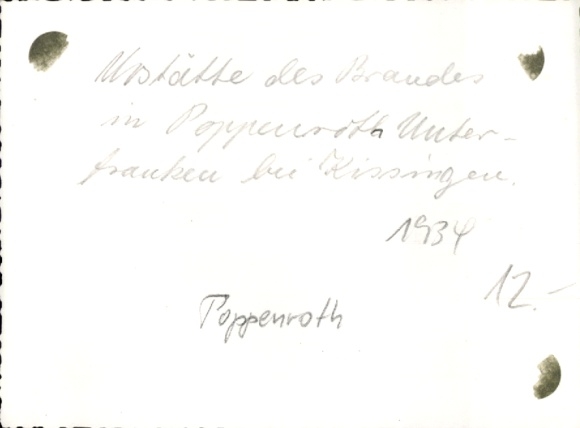 des Brandes
in Poppenroth Unter-
franken bei Kissingen.
1934
12.-
Poppenroth